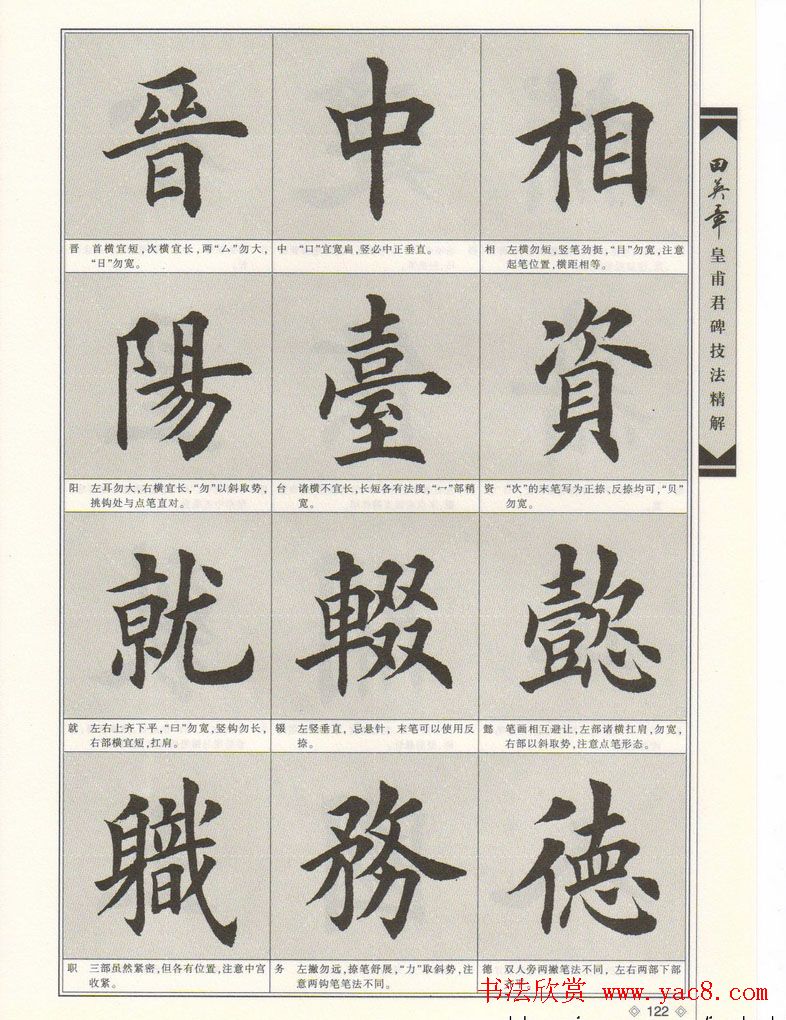 晉 中 相
晋 首横宜短,次横宜长,两“厶”勿大,
“日”勿宽。
中 “口”宜宽扁,竖必中正垂直。
相 左横勿短,竖笔劲挺,“目”勿宽,注意
起笔位置,横距相等。
陽 臺 資
阳 左耳勿大,右横宜长,“勿”以斜取势,
挑钩处与点笔直对。
台 诸横不宜长,长短各有法度,“冖”部稍
宽。
资 “次”的末笔写为正捺、反捺均可,“贝”
勿宽。
就 輟 懿
就 左右上齐下平,“曰”勿宽,竖钩勿长,
右部横宜短,扛肩。
辍 左竖垂直,忌悬针,末笔可以使用反
捺。
懿 笔画相互避让,左部诸横扛肩,勿宽,
右部以斜取势,注意点笔形态。
職 務 德
职 三部虽然紧密,但各有位置,注意中宫
收紧。
务 左撇勿远,捺笔舒展,“力”取斜势,注
意两钩笔法不同。
德 双人旁两撇笔法不同,左右两部下部
田英章
皇甫君碑技法精解
书法欣赏 www.yac8.com
122